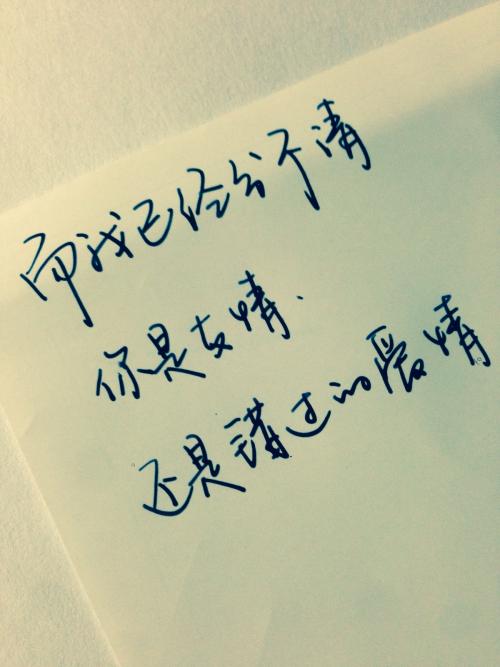 而我已经分不清
你是友情.
还是错过的爱情